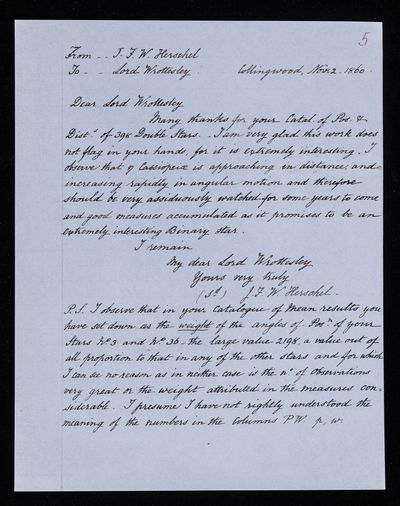 5
From - - J. F. W. Herschel
To - - Lord Wrottesley. Collingwood, Nov. 2. 1860.
Dear Lord Wrottesley
Many thanks for your Catal of Pos. &
Dist.s of 398 Double Stars. - I am very glad this work does
not flag in your hands, for it is extremely interesting. I
observe that η Cassiopeiæ is approaching in distance, and
increasing rapidly in angular motion and therefore
should be very assiduously watched for some years to come
and good measures accumulated as it promises to be an
extremely interesting Binary star.
I remain
My dear Lord Wrottesley
Yours very truly
(Sd.) J. F. W. Herschel.
P.S. I observe that in your Catalogue of Mean results you
have set down as the weight of the angles of Posn of your
Stars No 3 and No 36 - the large value 2198, a value out of
all proportion to that in any of the other stars and for which
I can see no reason as in neither case is the no. of observations
very great or the weight attributed in the measures con-
siderable. I presume I have not rightly understood the
meaning of the numbers in the columns P W. p, w.